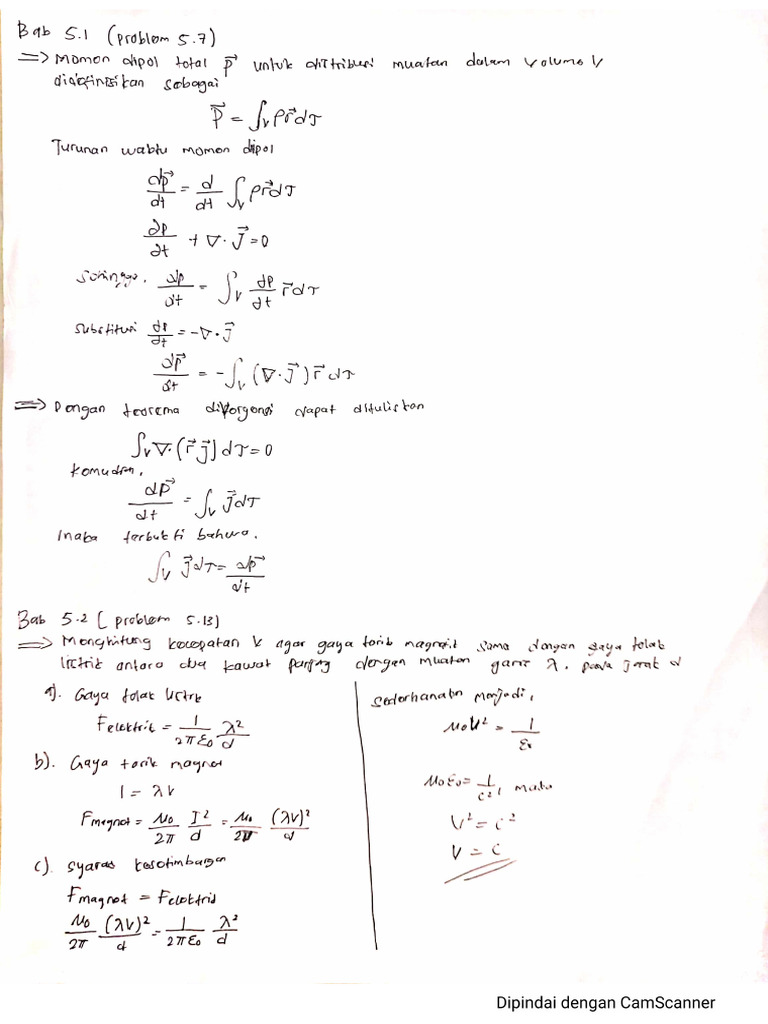 Bab 5.1 (problem 5.7)
=> Momen dipol total p⃗ untuk distribusi muatan dalam volume V
didefinisikan sebagai
P⃗ = ∫ᵥ ρr⃗dτ
Turunan waktu momen dipol
dp⃗/dt = d/dt ∫ᵥ ρr⃗dτ
∂ρ/∂t + ∇·J⃗ = 0
Sehingga, dp/dt = ∫ᵥ dρ/dt r⃗dτ
Substitusi dρ/dt = -∇·J⃗
dp⃗/dt = -∫ᵥ (∇·J⃗) r⃗ dτ
=> Dengan teorema divergensi dapat dituliskan
∫ᵥ ∇·(r⃗ J⃗) dτ = 0
Kemudian,
dP⃗/dt = ∫ᵥ J⃗dτ
Maka terbukti bahwa,
∫ᵥ J⃗dτ = dp⃗/dt
Bab 5.2 ( problem 5.13)
=> Menghitung kecepatan V agar gaya tarik magnet sama dengan gaya tolak
listrik antara dua kawat panjang dengan muatan garis λ, pada jarak d
a). Gaya tolak listrik
F elektrik = 1/2πε₀ λ²/d
b). Gaya tarik magnet
I = λv
F magnet = μ₀/2π I²/d = μ₀/2π (λv)²/d
c). Syarat kesetimbangan
F magnet = F elektrik
μ₀/2π (λv)²/d = 1/2πε₀ λ²/d
Sederhanakan menjadi,
μ₀v² = 1/ε₀
μ₀ε₀ = 1/c², maka
V² = c²
V = c
Dipindai dengan CamScanner